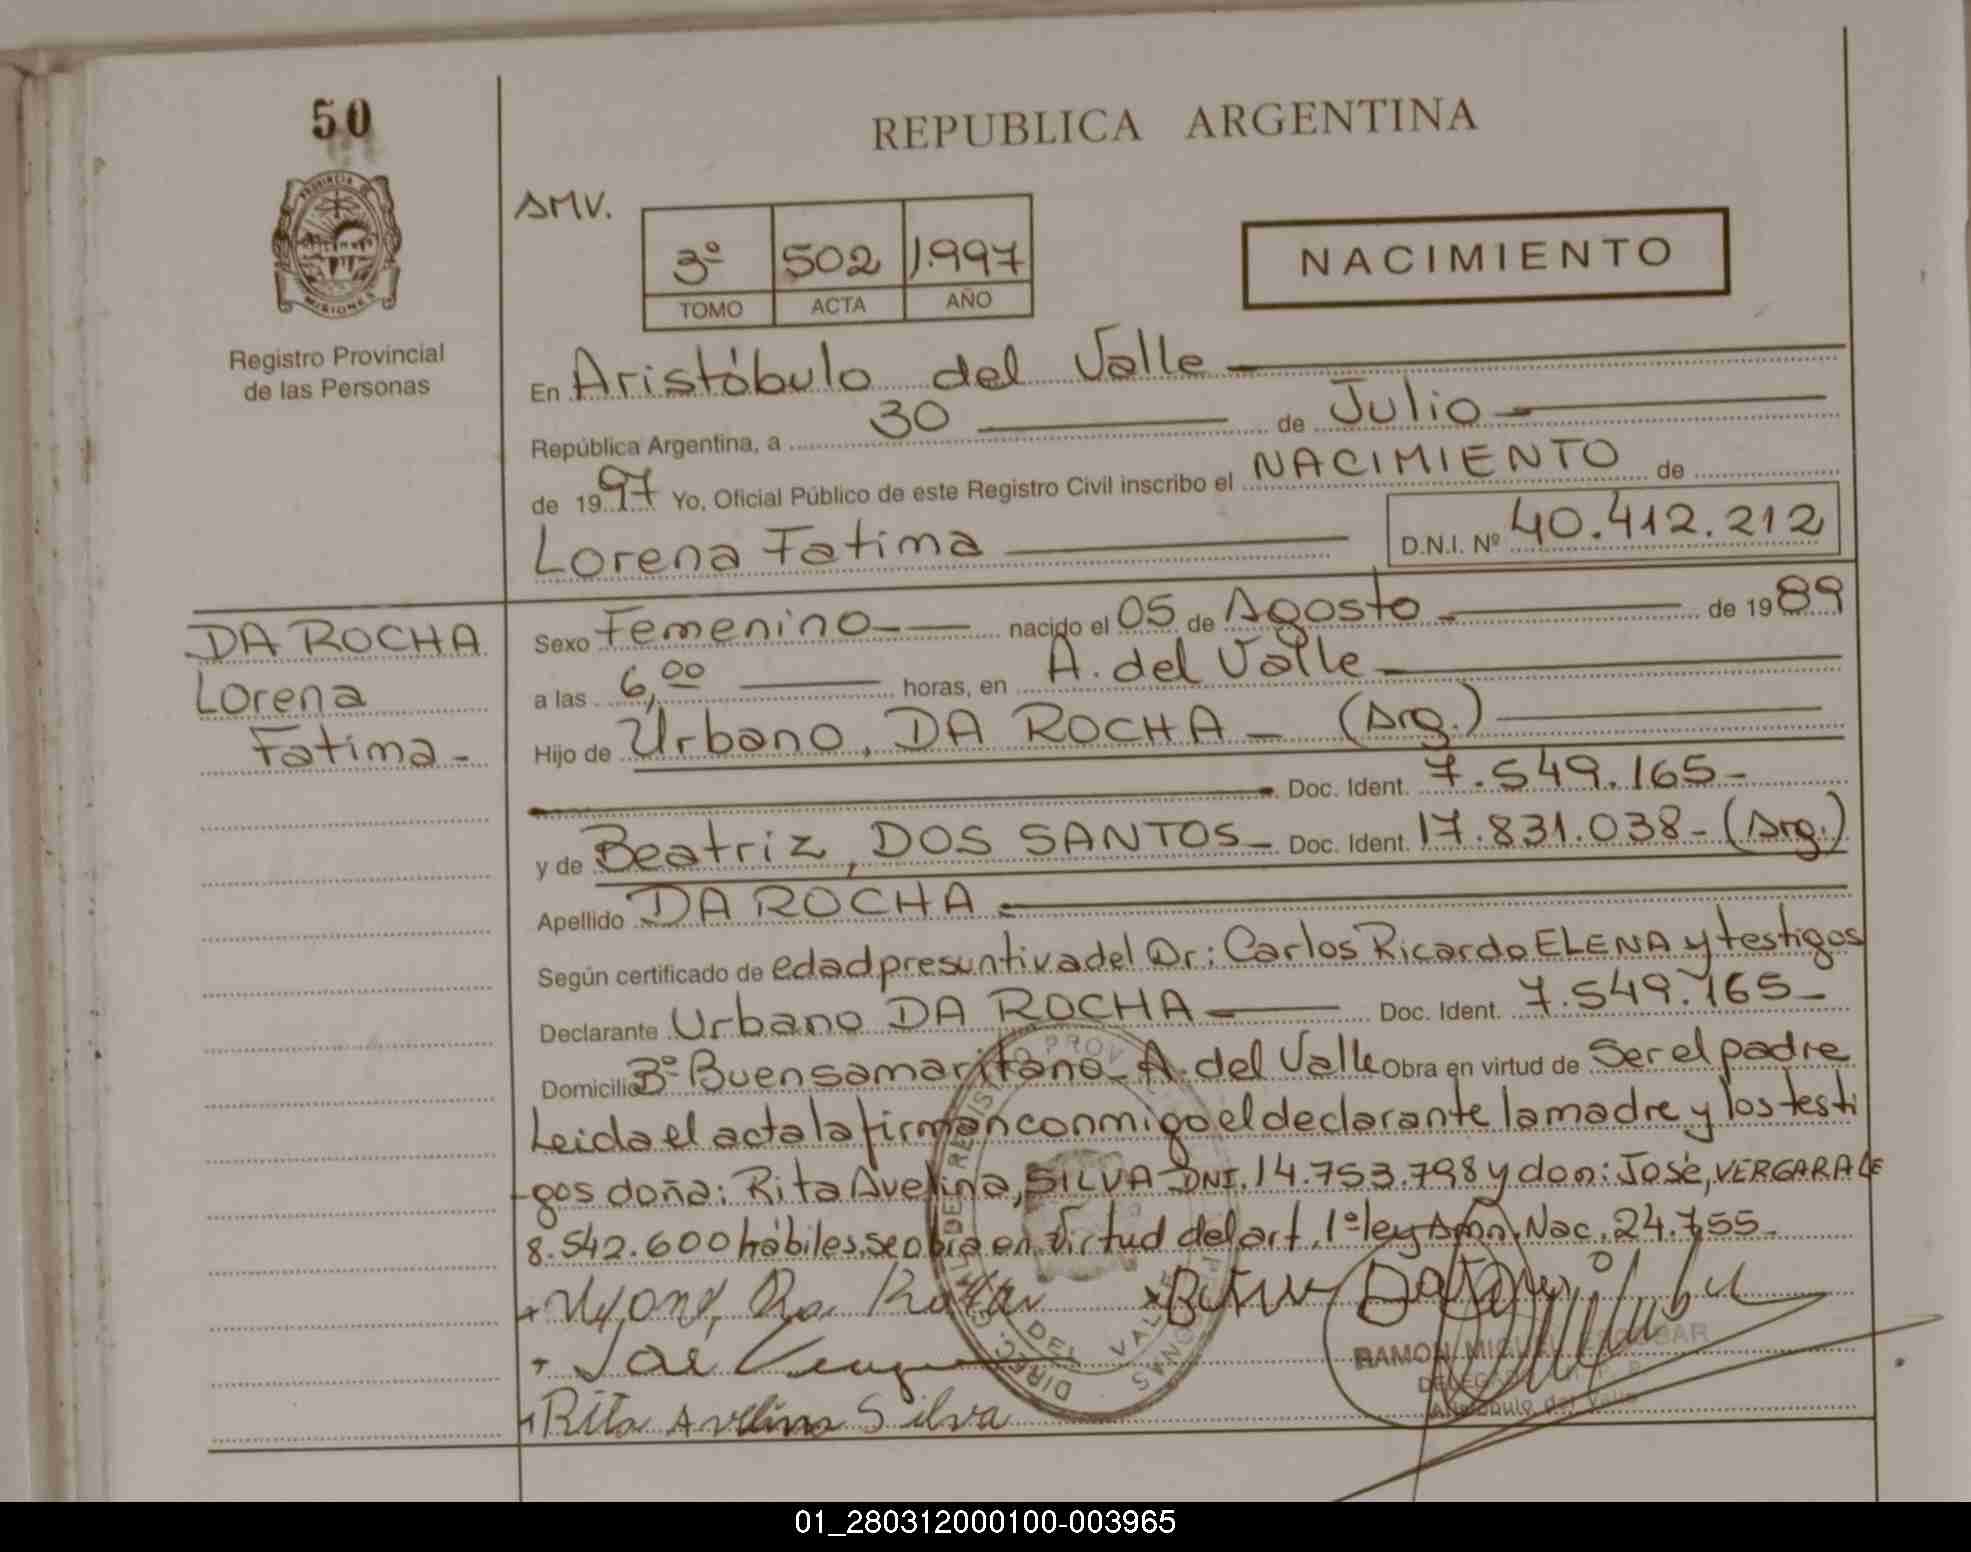 50
REPUBLICA ARGENTINA
SMV.
3º 502 1.997
TOMO ACTA AÑO
NACIMIENTO
PROVINCIA DE MISIONES
Registro Provincial
de las Personas
En Aristóbulo del Valle
República Argentina, a 30 de Julio
de 1997 Yo, Oficial Público de este Registro Civil inscribo el NACIMIENTO de
Lorena Fatima D.N.I. Nº 40.412.212
DA ROCHA
Lorena
Fatima-
Sexo Femenino nacido el 05 de Agosto de 1989
a las 6,00 horas, en A. del Valle
Hijo de Urbano, DA ROCHA - (Arg.)
Doc. Ident. 7.549.165-
y de Beatriz, DOS SANTOS- Doc. Ident. 17.831.038- (Arg.)
Apellido DA ROCHA
Según certificado de edad presuntiva del Dr: Carlos Ricardo ELENA y testigos
Declarante Urbano DA ROCHA Doc. Ident. 7.549.165-
Domicilio Bº Buen samaritano- A. del Valle Obra en virtud de Ser el padre
Leida el acta la firman conmigo el declarante la madre y los testi
-gos doña: Rita Avelina, SILVA DNI. 14.753.798 y don: José, VERGARA LE
8.542.600 hábiles. se obra en virtud del art. 1º ley Amn. Nac. 24.755-
Rita Avelina Silva
DIREC. GRAL. DEL REGISTRO PROV.
DEL VALLE
RAMON MIGUEL ESCOBAR
Aristóbulo del Valle
01_280312000100-003965